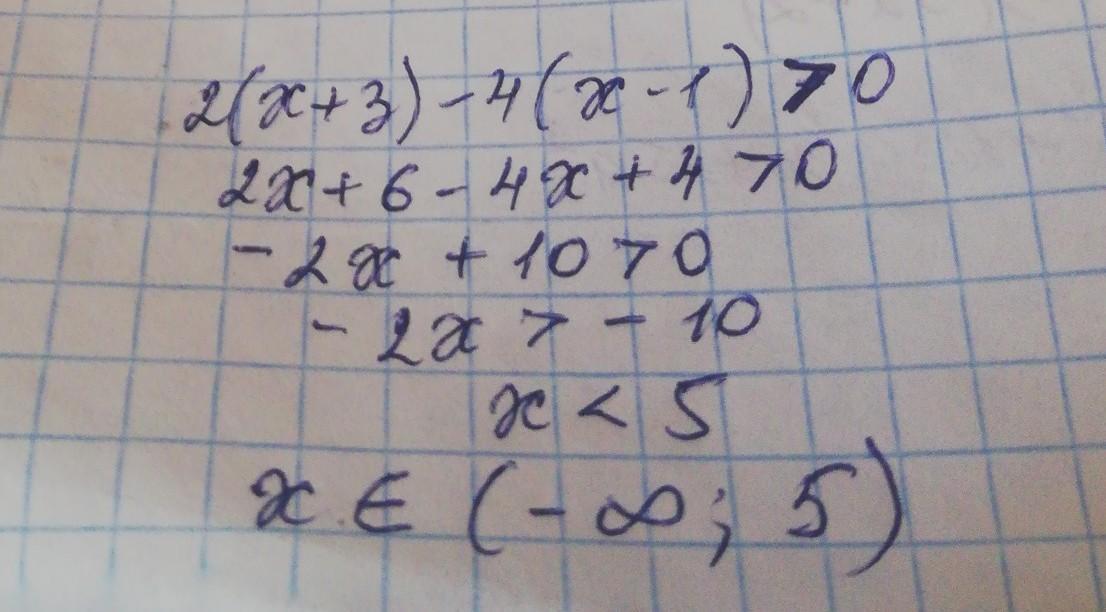 2(x+3)-4(x-1)>0
2x+6-4x+4>0
-2x+10>0
-2x>-10
x<5
x∈(-∞;5)